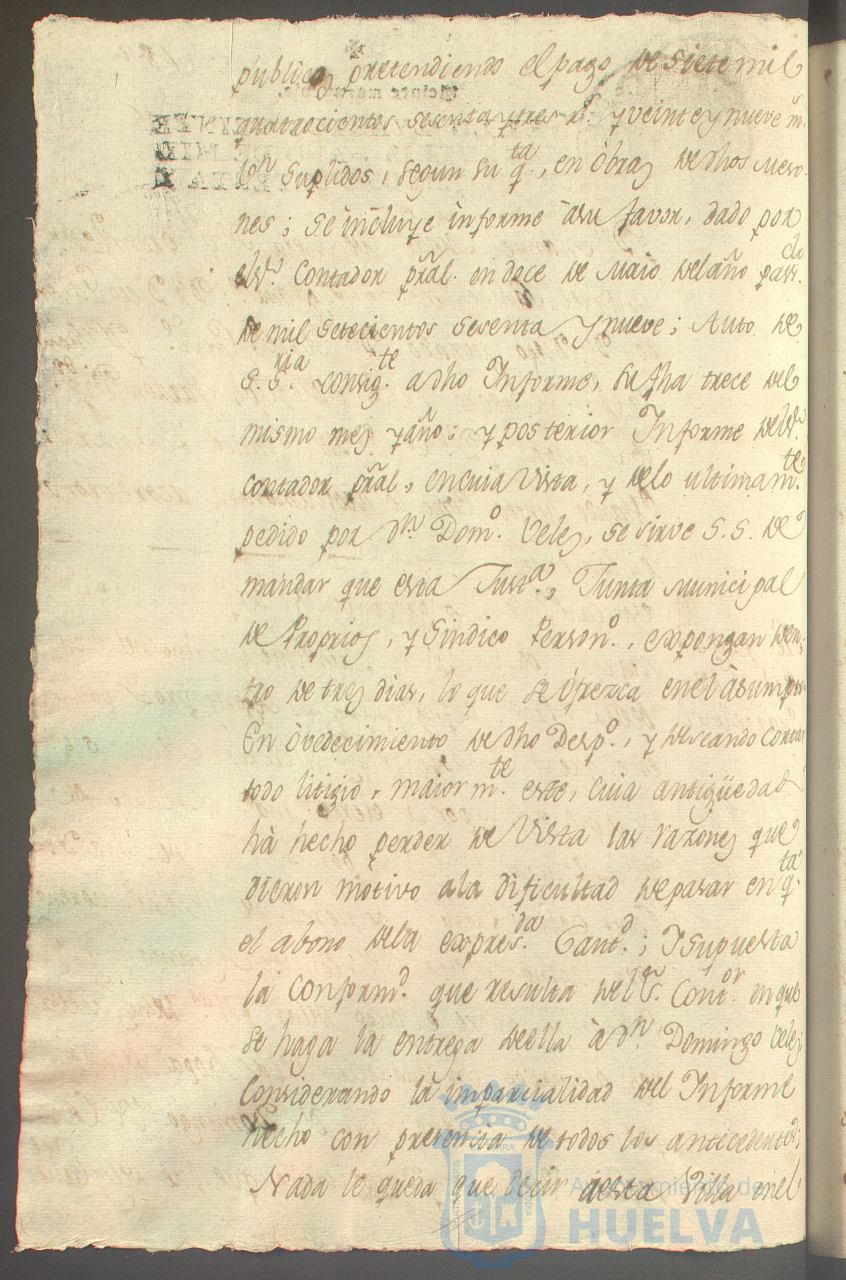 publico, pretendiendo el pago de siete mil
quatrocientos sesenta y tres r.s y veinte y nueve m.s
v.on suplidos, segun su q.ta, en obras de dhos meso-
nes; se incluye informe à su favor, dado por
el S.r Contador pral. en doce de Maio del año pas.do
de mil setecientos sesenta y nueve; Auto de
S.S.ria consig.te a dho Informe, su fha trece del
mismo mes y año; y posterior Informe del S.r
contador pral, en cuia Vista, y de lo ultimam.te
pedido por D.n Dom.o Velez, se sirve S.S. de
mandar que esta Just.a, Junta Municipal
de Proprios, y Sindico Person.o, expongan den-
tro de tres dias, lo que se ofrezca en el àsumpto
En òvedecimiento de dho Desp.o, y deseando cortar
todo litigio, maiorm.te este, cuia antigüedad
hà hecho perder de Vista las razones que
dieron motivo a la dificultad de pasar en q.ta
el abono de la expres.da Cant.d; Y supuesta
la conform.d que resulta del S.r Cont.or en que
se haga la entrega de ella à D.n Domingo Velez
Considerando la imparcialidad del Informe
hecho con presencia de todos los antecedentes;
Nada le queda que decir à esta Villa en el
Ayuntamiento de
HUELVA